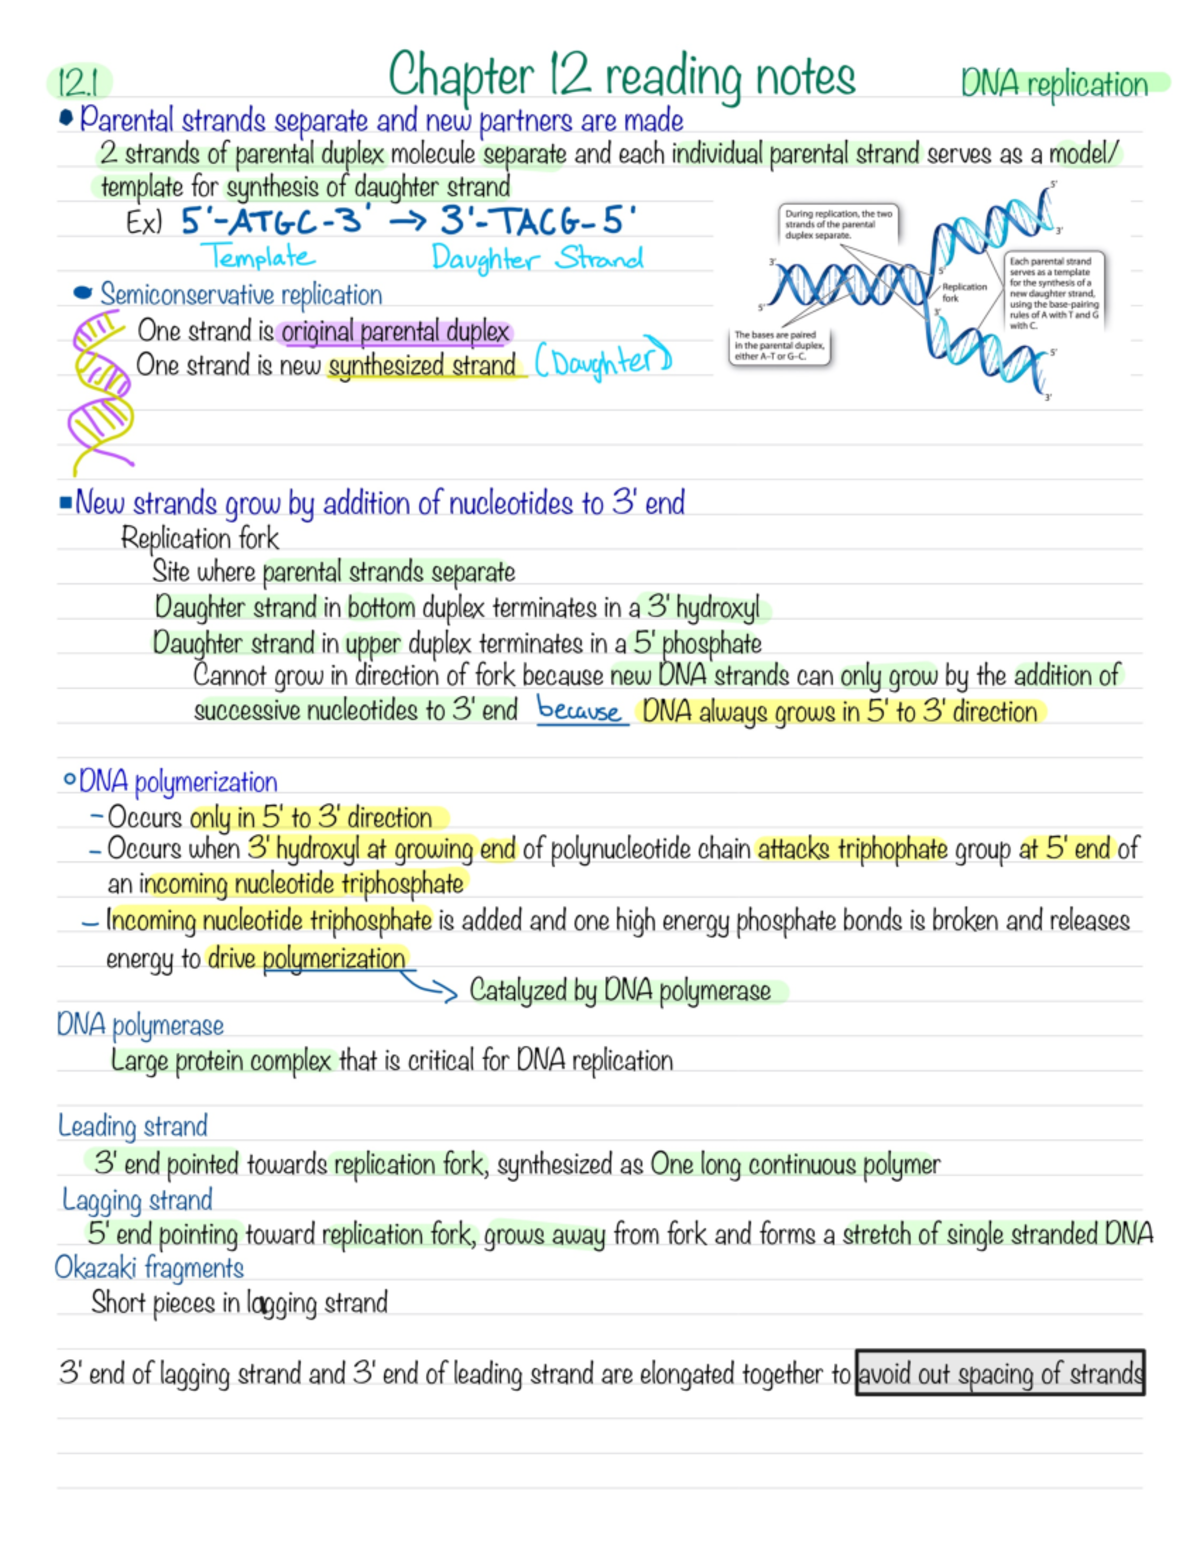 12.1
Chapter 12 reading notes
DNA replication
Parental strands separate and new partners are made
2 strands of parental duplex molecule separate and each individual parental strand serves as a model/
template for synthesis of daughter strand
Ex) 5'-ATGC-3' → 3'-TACG-5'
Template Daughter Strand
Semiconservative replication
One strand is original parental duplex
One strand is new synthesized strand (Daughter)
During replication, the two
strands of the parental
duplex separate.
5'
3'
3'
5'
5'
Replication
fork
3'
Each parental strand
serves as a template
for the synthesis of a
new daughter strand,
using the base-pairing
rules of A with T and G
with C.
The bases are paired
in the parental duplex,
either A–T or G–C.
5'
3'
New strands grow by addition of nucleotides to 3' end
Replication fork
Site where parental strands separate
Daughter strand in bottom duplex terminates in a 3' hydroxyl
Daughter strand in upper duplex terminates in a 5' phosphate
Cannot grow in direction of fork because new DNA strands can only grow by the addition of
successive nucleotides to 3' end because DNA always grows in 5' to 3' direction
DNA polymerization
- Occurs only in 5' to 3' direction
- Occurs when 3' hydroxyl at growing end of polynucleotide chain attacks triphophate group at 5' end of
an incoming nucleotide triphosphate
- Incoming nucleotide triphosphate is added and one high energy phosphate bonds is broken and releases
energy to drive polymerization
Catalyzed by DNA polymerase
DNA polymerase
Large protein complex that is critical for DNA replication
Leading strand
3' end pointed towards replication fork, synthesized as One long continuous polymer
Lagging strand
5' end pointing toward replication fork, grows away from fork and forms a stretch of single stranded DNA
Okazaki fragments
Short pieces in lagging strand
3' end of lagging strand and 3' end of leading strand are elongated together to avoid out spacing of strands